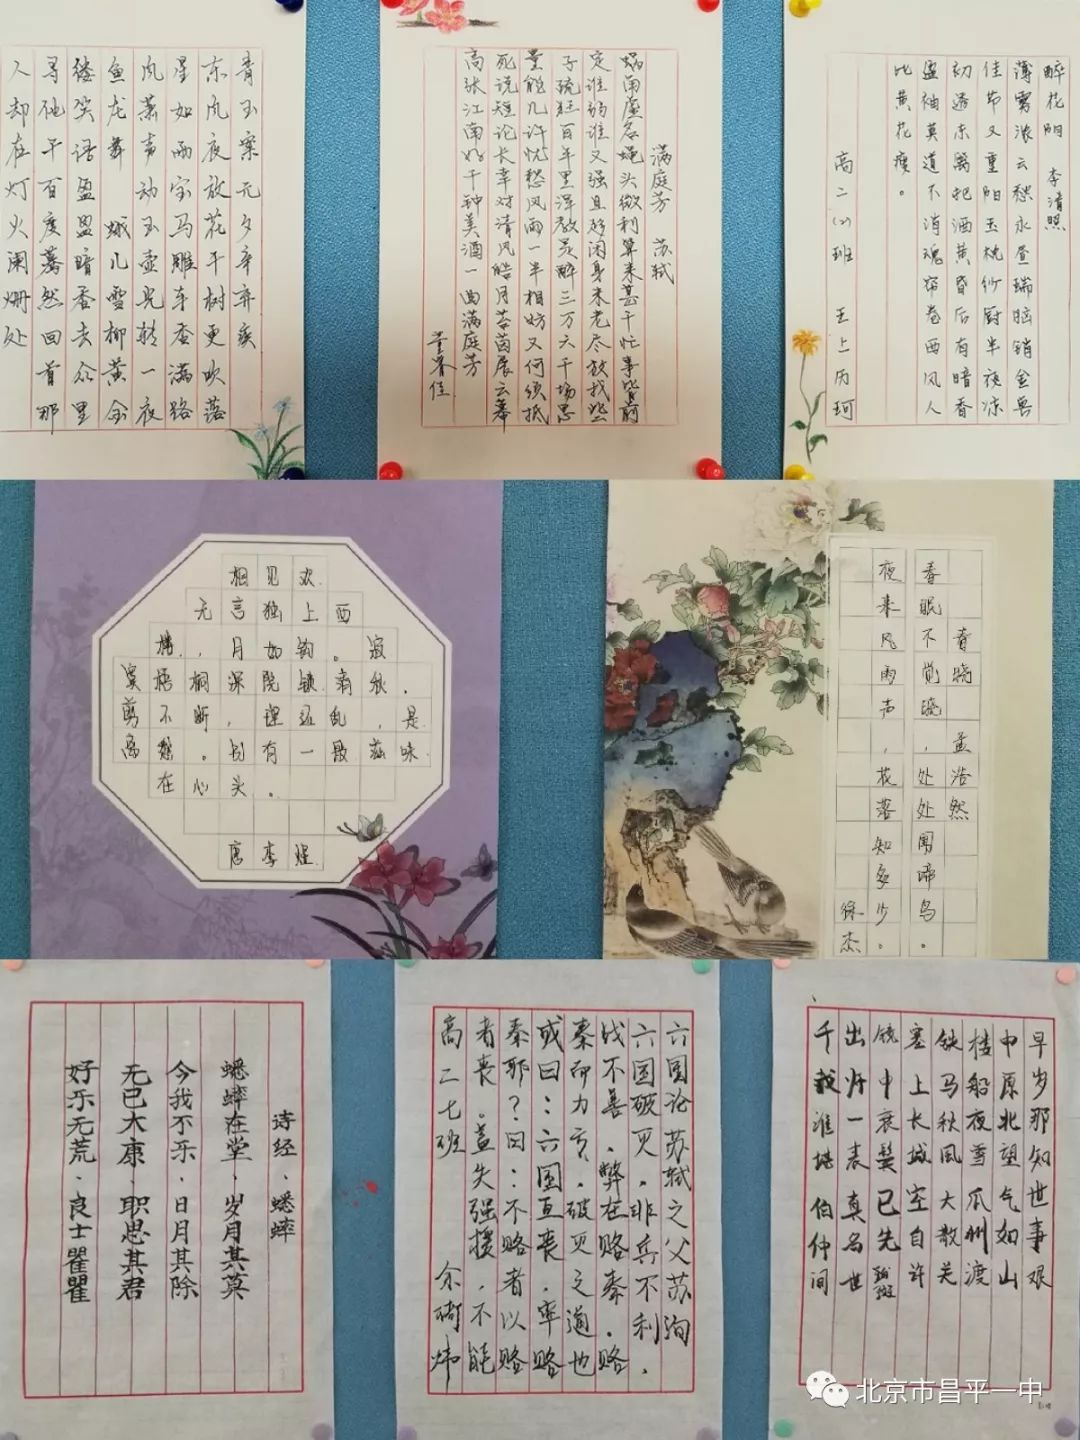 青玉案元夕辛弃疾
东风夜放花千树更吹落
星如雨宝马雕车香满路
凤萧声动玉壶光转一夜
鱼龙舞 蛾儿雪柳黄金
缕笑语盈盈暗香去众里
寻他千百度蓦然回首那
人却在灯火阑珊处
满庭芳 苏轼
蜗角虚名蝇头微利算来甚干忙事皆前
定谁弱谁又强且趁闲身未老尽放我些
子疏狂百年里浑教是醉三万六千场思
量能几许忧愁风雨一半相妨又何须抵
死说短论长幸对清风皓月苔茵展云幕
高张江南好千钟美酒一曲满庭芳
醉花阴 李清照
薄雾浓云愁永昼瑞脑销金兽
佳节又重阳玉枕纱厨半夜凉
初透东篱把酒黄昏后有暗香
盈袖莫道不消魂帘卷西风人
比黄花瘦。
高二(2)班 王上历珂
相见欢
无言独上西
楼,月如钩。寂
寞梧桐深院锁清秋,
剪不断,理还乱,是
离愁。别有一般滋味
在心头。
唐李煜
春晓 孟浩然
春眠不觉晓,处处闻啼鸟。
夜来风雨声,花落知多少。
徐杰
诗经·蟋蟀
蟋蟀在堂,岁月其莫
今我不乐,日月其除
无已大康,职思其君
好乐无荒,良士瞿瞿
六国论苏轼之父苏洵
六国破灭,非兵不利,
战不善,弊在赂秦,赂
秦而力亏,破灭之道也
或曰:六国互丧,率赂
秦耶?曰:不赂者以赂
者丧。盖失强援,不能
高二七班
早岁那知世事艰
中原北望气如山
楼船夜雪瓜州渡
铁马秋风大散关
塞上长城空自许
镜中衰鬓已先斑
出师一表真名世
千载谁堪伯仲间
北京市昌平一中